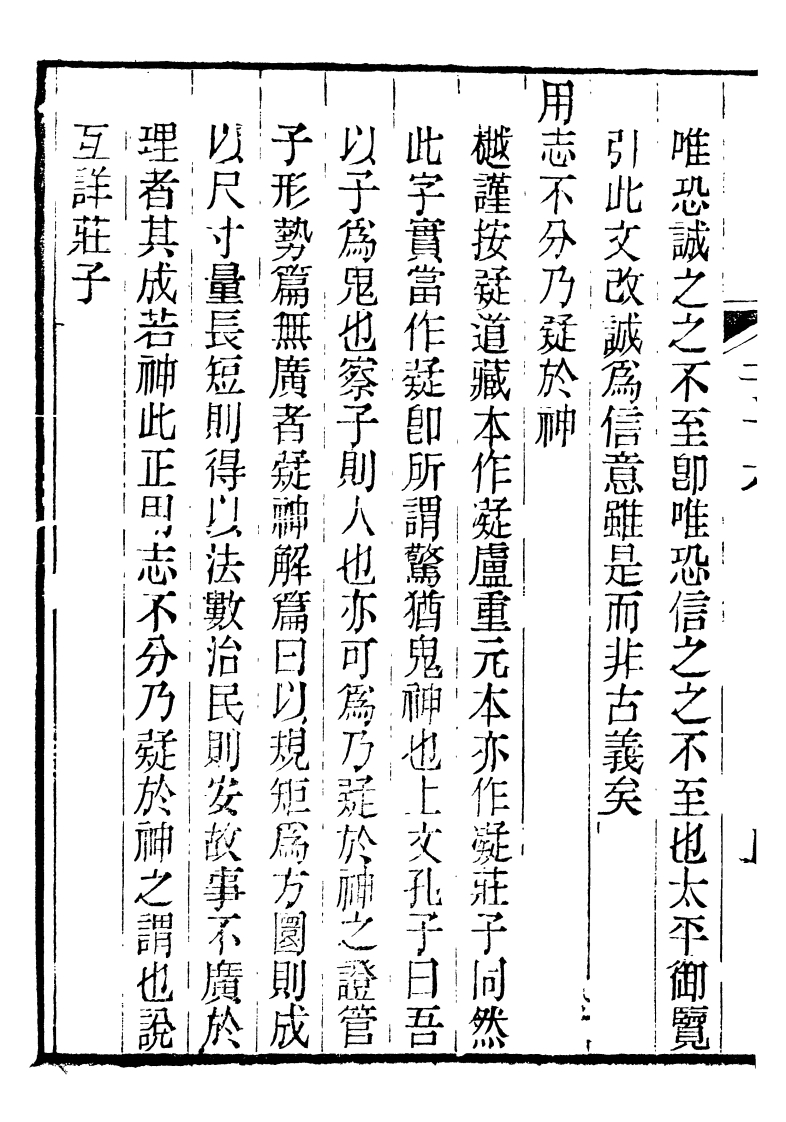 唯恐誠之之不至卽唯恐信之之不至也太平御覽
引此文改誠爲信意雖是而非古義矣
用志不分乃疑於神
樾謹按疑道藏本作凝盧重元本亦作凝莊子同然
此字實當作疑卽所謂驚猶鬼神也上文孔子曰吾
以子爲鬼也察子則人也亦可爲乃疑於神之證管
子形勢篇無廣者疑神解篇曰以規矩爲方圜則成
以尺寸量長短則得以法數治民則安故事不廣於
理者其成若神此正用志不分乃疑於神之謂也說
互詳莊子